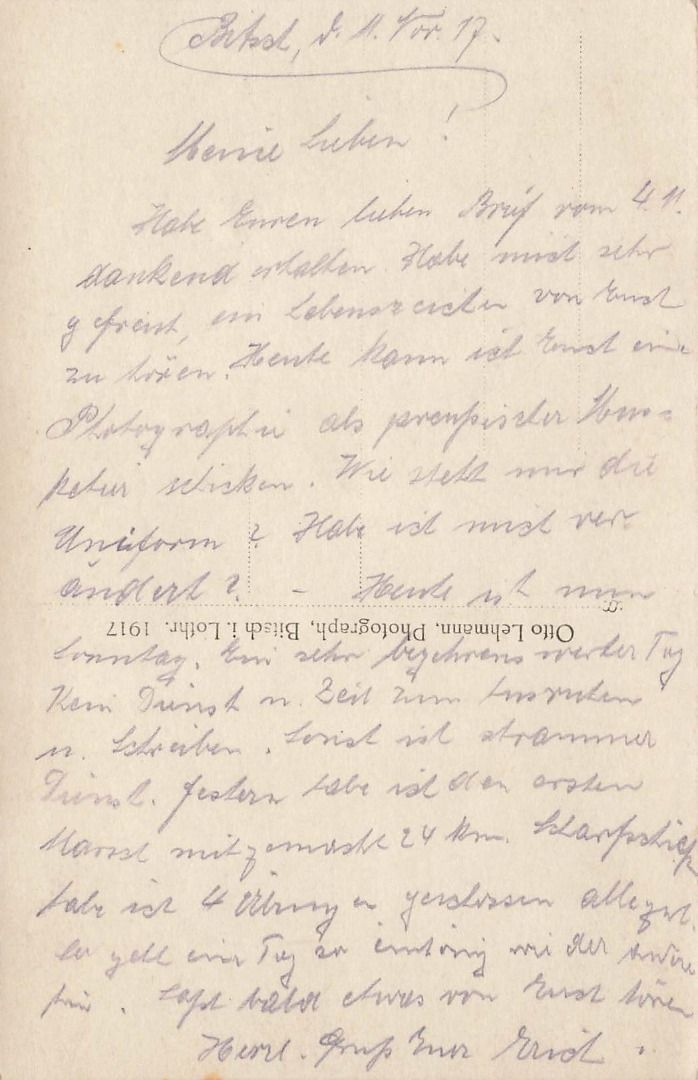 Bitsch, d. 11. Nov. 17.
Meine Lieben!
Habe Euren lieben Brief vom 4.11.
dankend erhalten. Habe mich sehr
gefreut, ein Lebenszeichen von Euch
zu hören. Heute kann ich Euch eine
Photographie als preußischer Mus=
ketier schicken. Wie steht mir die
Uniform? Habe ich mich ver-
ändert? - Heute ist nun
Otto Lehmann, Photograph, Bitsch i. Lothr. 1917
Sonntag. Ein sehr begehrenswerter Tag
Kein Dienst u. Zeit zum Ausruhen
u. Schreiben. Sonst ist strammer
Dienst. Gestern habe ich den ersten
Marsch mitgemacht 24 km. Scharfschieß
habe ich 4 Übungen geschossen alle gut.
So geht ein Tag so eintönig wie der andere
hin. Laßt bald etwas von Euch hören
Herzl. Gruß Euer Erich.